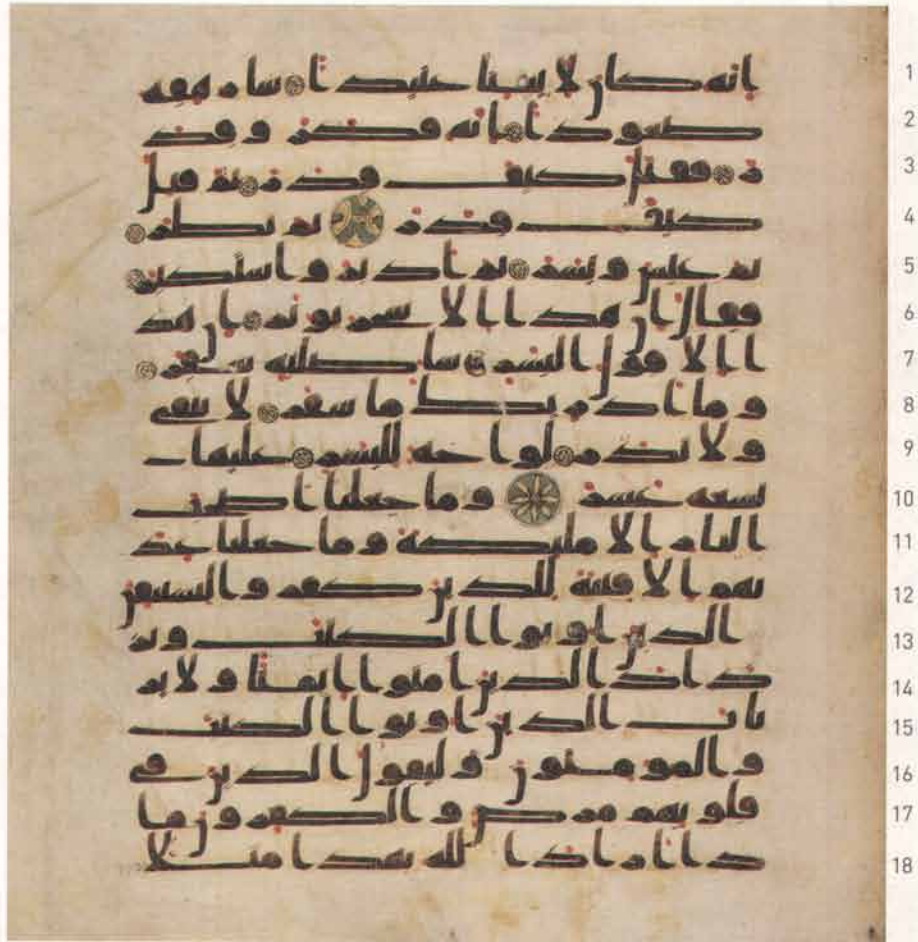 1 انه كان لايتنا عنيدا سارهقه
2 صعودا انه فكر وقد
3 ر فقتل كيف قدر ثم قتل
4 كيف قدر ثم نظر
5 ثم عبس وبسر ثم ادبر واستكبر
6 فقال ان هذا الا سحر يوثر ان هذ
7 ا الا قول البشر ساصليه سقر
8 وما ادريك ما سقر لا تبقى
9 ولا تذر لواحة للبشر عليها
10 تسعة عشر وما جعلنا اصحب
11 النار الا مليكة وما جعلنا عد
12 تهم الا فتنة للذين كفروا ليستيقن
13 الذين اوتوا الكتب ويز
14 داد الذين امنوا ايمنا ولا ير
15 تاب الذين اوتوا الكتب
16 والمومنون وليقول الذين في
17 قلوبهم مرض والكفرون ما
18 ذا اراد الله بهذا مثلا